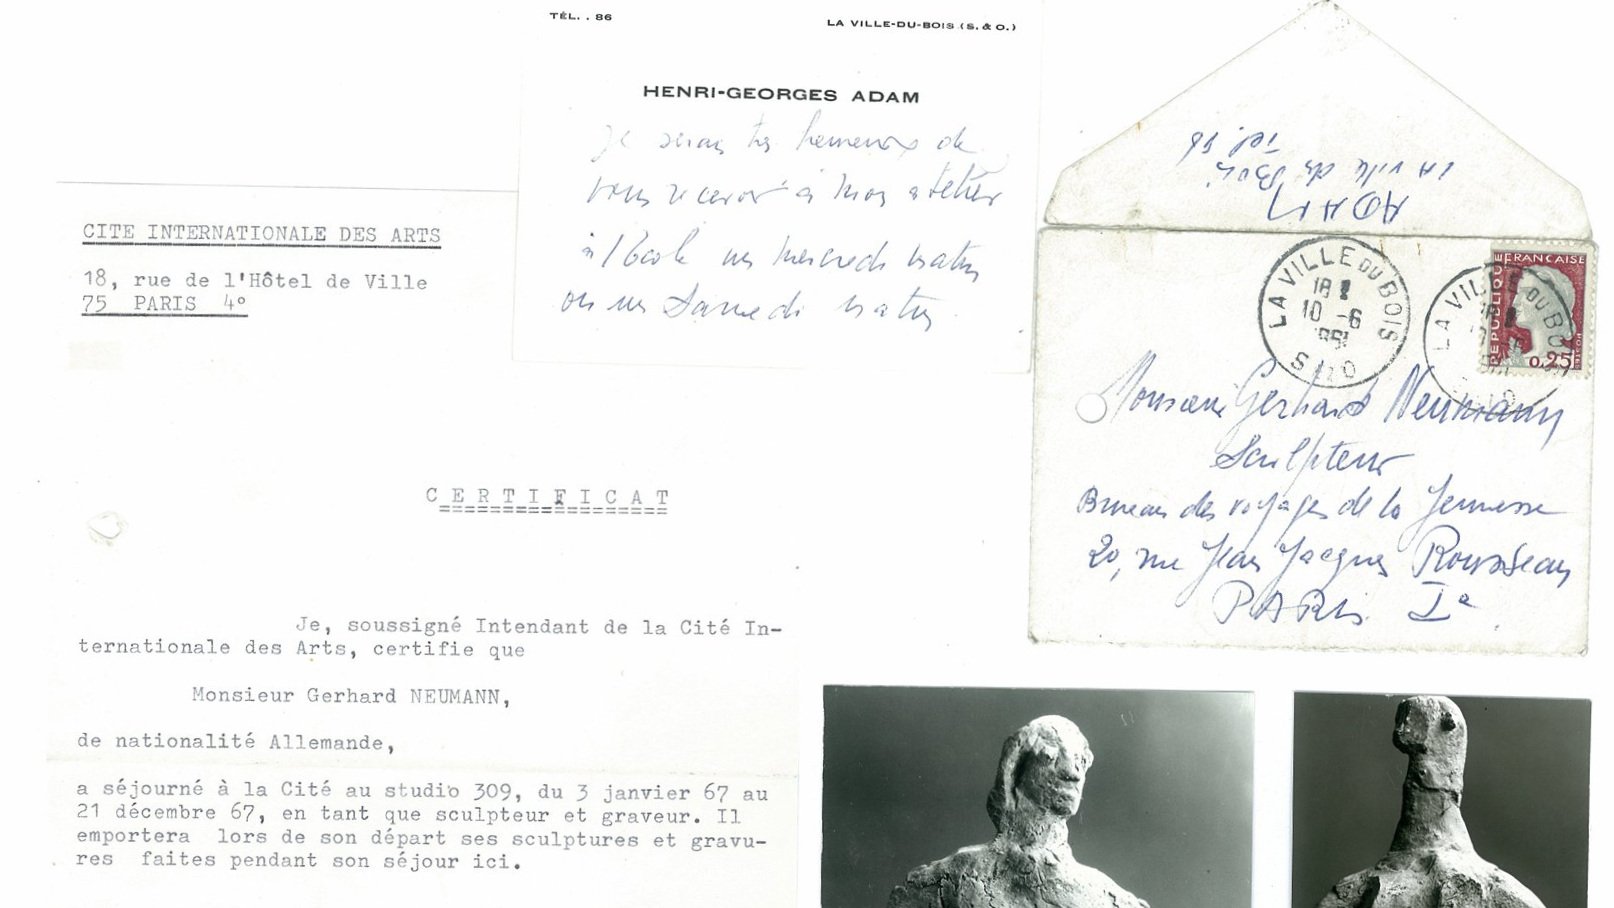 TÉL. . 86
LA VILLE-DU-BOIS (S. & O.)
HENRI-GEORGES ADAM
Je serais très heureux de
vous recevoir à mon atelier
à l'École un mercredi matin
ou un Samedi matin
CITE INTERNATIONALE DES ARTS
18, rue de l'Hôtel de Ville
75 PARIS 4°
CERTIFICAT
Je, soussigné Intendant de la Cité In-
ternationale des Arts, certifie que
Monsieur Gerhard NEUMANN,
de nationalité Allemande,
a séjourné à la Cité au studio 309, du 3 janvier 67 au
21 décembre 67, en tant que sculpteur et graveur. Il
emportera lors de son départ ses sculptures et gravu-
res faites pendant son séjour ici.
ADAM
LA Ville du Bois
Tel. 86
LA VILLE DU BOIS
18
10 -6
S O
LA VILLE DU BO
REPUBLIQUE FRANÇAISE
0,25
POSTES
Monsieur Gerhard Neumann
Sculpteur
Bureau des voyages de la Jeunesse
20, rue Jean Jacques Rousseau
PARIS Ie